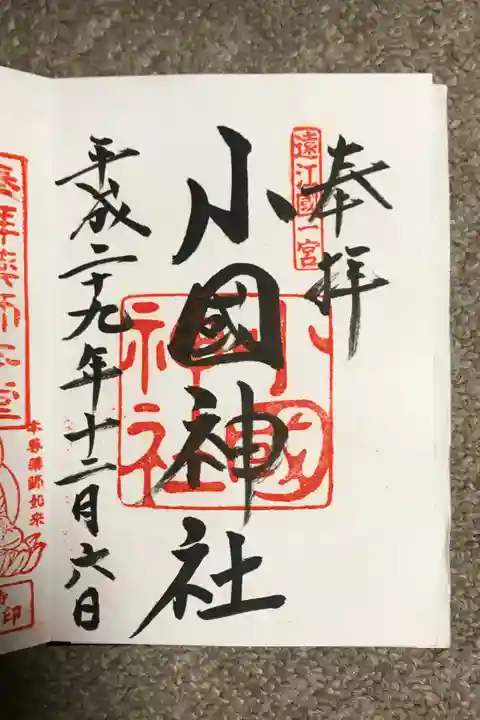 奉拝
遠江國一宮
小國神社
小國神社
平成二十九年十二月六日
本尊薬師如来